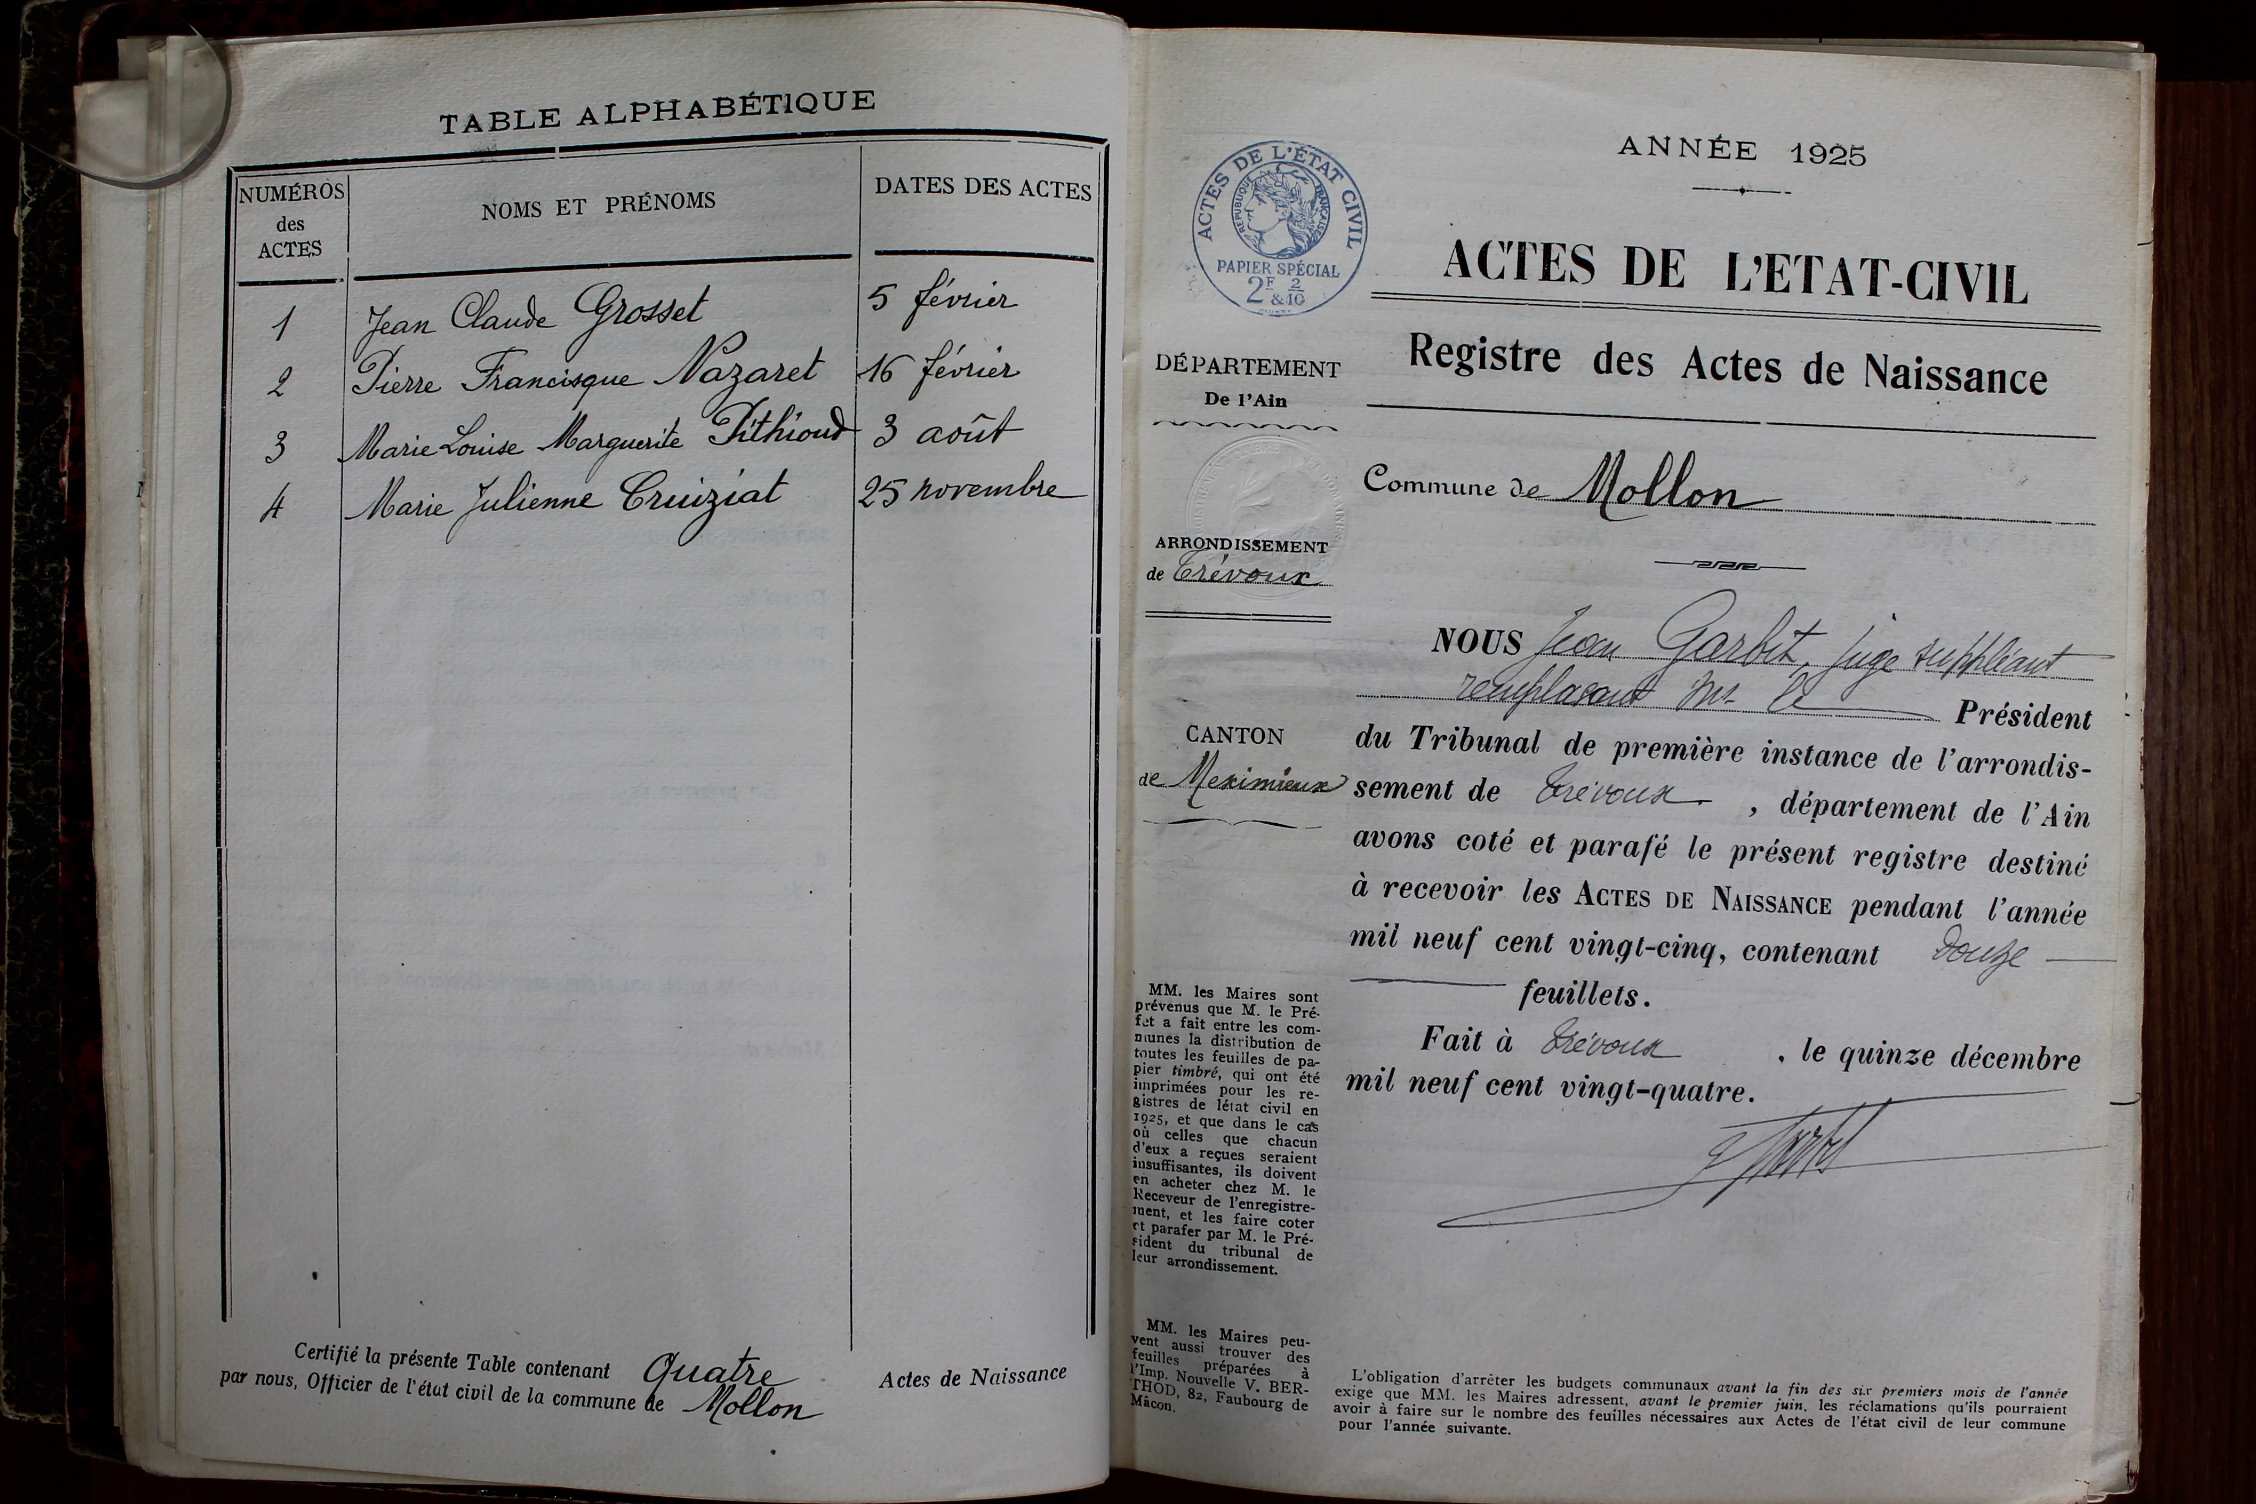 TABLE ALPHABÉTIQUE
NUMÉROS des ACTES
NOMS ET PRÉNOMS
DATES DES ACTES
1 Jean Claude Grosset 5 février
2 Pierre Francisque Nazaret 16 février
3 Marie Louise Marguerite Pithioud 3 août
4 Marie Julienne Cruiziat 25 novembre
Certifié la présente Table contenant Quatre Actes de Naissance
par nous, Officier de l'état civil de la commune de Mollon
ANNÉE 1925
ACTES DE L'ÉTAT CIVIL
RÉPUBLIQUE FRANÇAISE
PAPIER SPÉCIAL
2F & 2/10
ACTES DE L'ETAT-CIVIL
Registre des Actes de Naissance
DÉPARTEMENT
De l'Ain
Commune de Mollon
ARRONDISSEMENT
de Trévoux
CANTON
de Meximieux
NOUS Jean Garbit, juge suppléant
remplaçant Mr le Président
du Tribunal de première instance de l'arrondis-
sement de Trévoux, département de l'Ain
avons coté et parafé le présent registre destiné
à recevoir les ACTES DE NAISSANCE pendant l'année
mil neuf cent vingt-cinq, contenant douze
feuillets.
Fait à Trévoux, le quinze décembre
mil neuf cent vingt-quatre.
MM. les Maires sont
prévenus que M. le Pré-
fet a fait entre les com-
munes la distribution de
toutes les feuilles de pa-
pier timbré, qui ont été
imprimées pour les re-
gistres de létat civil en
1925, et que dans le cas
où celles que chacun
d'eux a reçues seraient
insuffisantes, ils doivent
en acheter chez M. le
Receveur de l'enregistre-
ment, et les faire coter
et parafer par M. le Pré-
sident du tribunal de
leur arrondissement.
MM. les Maires peu-
vent aussi trouver des
feuilles préparées à
l'Imp. Nouvelle V. BER-
THOD, 82, Faubourg de
Mâcon.
L'obligation d'arrêter les budgets communaux avant la fin des six premiers mois de l'année
exige que MM. les Maires adressent, avant le premier juin, les réclamations qu'ils pourraient
avoir à faire sur le nombre des feuilles nécessaires aux Actes de l'état civil de leur commune
pour l'année suivante.